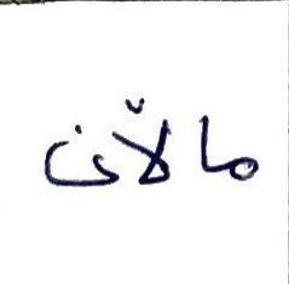 ماڵان